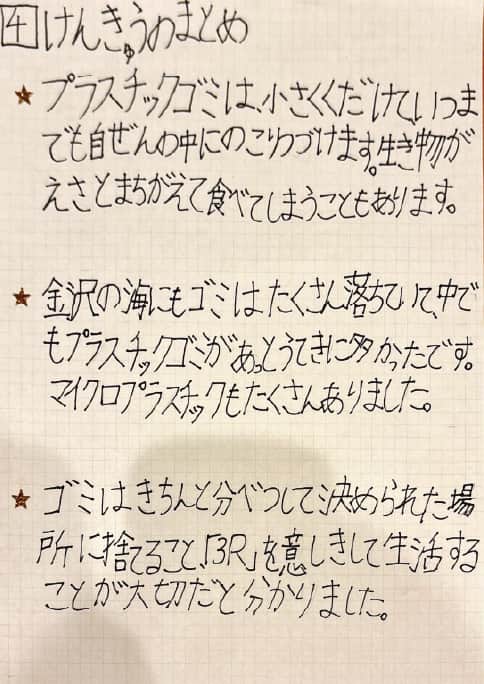 4 けんきゅうのまとめ
★ プラスチックゴミは、小さくくだけて、いつま
でも自ぜんの中にのこりつづけます。生き物が
えさとまちがえて食べてしまうこともあります。
★ 金沢の海にもゴミはたくさん落ちていて、中で
もプラスチックゴミがあっとうてきに多かったです。
マイクロプラスチックもたくさんありました。
★ ゴミはきちんと分べつして決められた場
所に捨てること、「3R」を意しきして生活する
ことが大切だと分かりました。